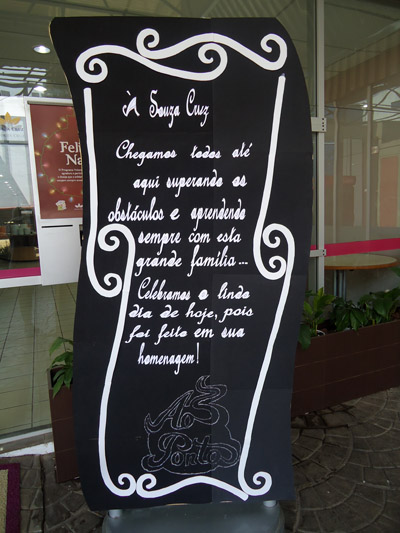 À Souza Cruz
Chegamos todos até
aqui superando os
obstáculos e aprendendo
sempre com esta
grande família...
Celebramos o lindo
dia de hoje, pois
foi feito em sua
homenagem!
Ao
Ponto
Feliz
Na